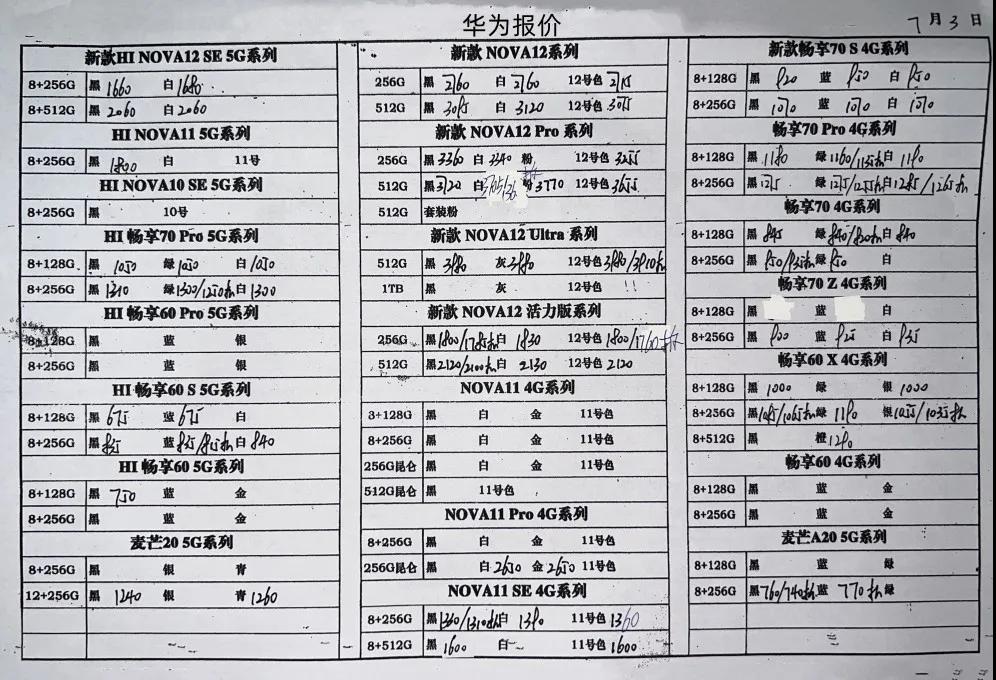 华为报价
7月3日
新款HI NOVA12 SE 5G系列
8+256G 黑 1660 白 1680
8+512G 黑 2060 白 2060
HI NOVA11 5G系列
8+256G 黑 1800 白 11号
HI NOVA10 SE 5G系列
8+256G 黑 10号
HI 畅享70 Pro 5G系列
8+128G 黑 1050 绿 1050 白 1050
8+256G 黑 1310 绿 1300/1250 白 1300
HI 畅享60 Pro 5G系列
8+128G 黑 蓝 银
8+256G 黑 蓝 银
HI 畅享60 S 5G系列
8+128G 黑 675 蓝 675 白
8+256G 黑 蓝 白 840
HI 畅享60 5G系列
8+128G 黑 750 蓝 金
8+256G 黑 蓝 金
麦芒20 5G系列
8+256G 黑 银 青
12+256G 黑 1240 银 青 1260
新款 NOVA12系列
256G 黑 2760 白 2760 12号色
512G 黑 白 3120 12号色
新款 NOVA12 Pro 系列
256G 黑 3360 白 3340 粉 12号色
512G 黑 3720 白 粉 3770 12号色
512G 套装粉
新款 NOVA12 Ultra 系列
512G 黑 3880 灰 3880 12号色 3880
1TB 黑 灰 12号色
新款 NOVA12 活力版系列
256G 黑 1800/1785 白 1830 12号色 1800/1760
512G 黑 2120/2100 白 2130 12号色 2120
NOVA11 4G系列
8+128G 黑 白 金 11号色
8+256G 黑 白 金 11号色
256G昆仑 黑 白 金 11号色
512G昆仑 黑 11号色
NOVA11 Pro 4G系列
8+256G 黑 白 金 11号色
256G昆仑 黑 白 2650 金 2650 11号色
NOVA11 SE 4G系列
8+256G 黑 1360/1310 白 1390 11号色 1360
8+512G 黑 1600 白 11号色 1600
新款畅享70 S 4G系列
8+128G 黑 920 蓝 950 白 950
8+256G 黑 1070 蓝 1070 白 1070
畅享70 Pro 4G系列
8+128G 黑 1180 绿 1160/1135 白 1190
8+256G 黑 绿 白
畅享70 4G系列
8+128G 黑 845 绿 840/820 白 840
8+256G 黑 绿 950 白
畅享70 Z 4G系列
8+128G 黑 蓝 白
8+256G 黑 900 蓝 白
畅享60 X 4G系列
8+128G 黑 1000 绿 银 1000
8+256G 黑 绿 1190 银
8+512G 黑 橙 1290
畅享60 4G系列
8+128G 黑 蓝 金
8+256G 黑 蓝 金
麦芒A20 5G系列
8+128G 黑 蓝 绿
8+256G 黑 760/740 蓝 770 绿